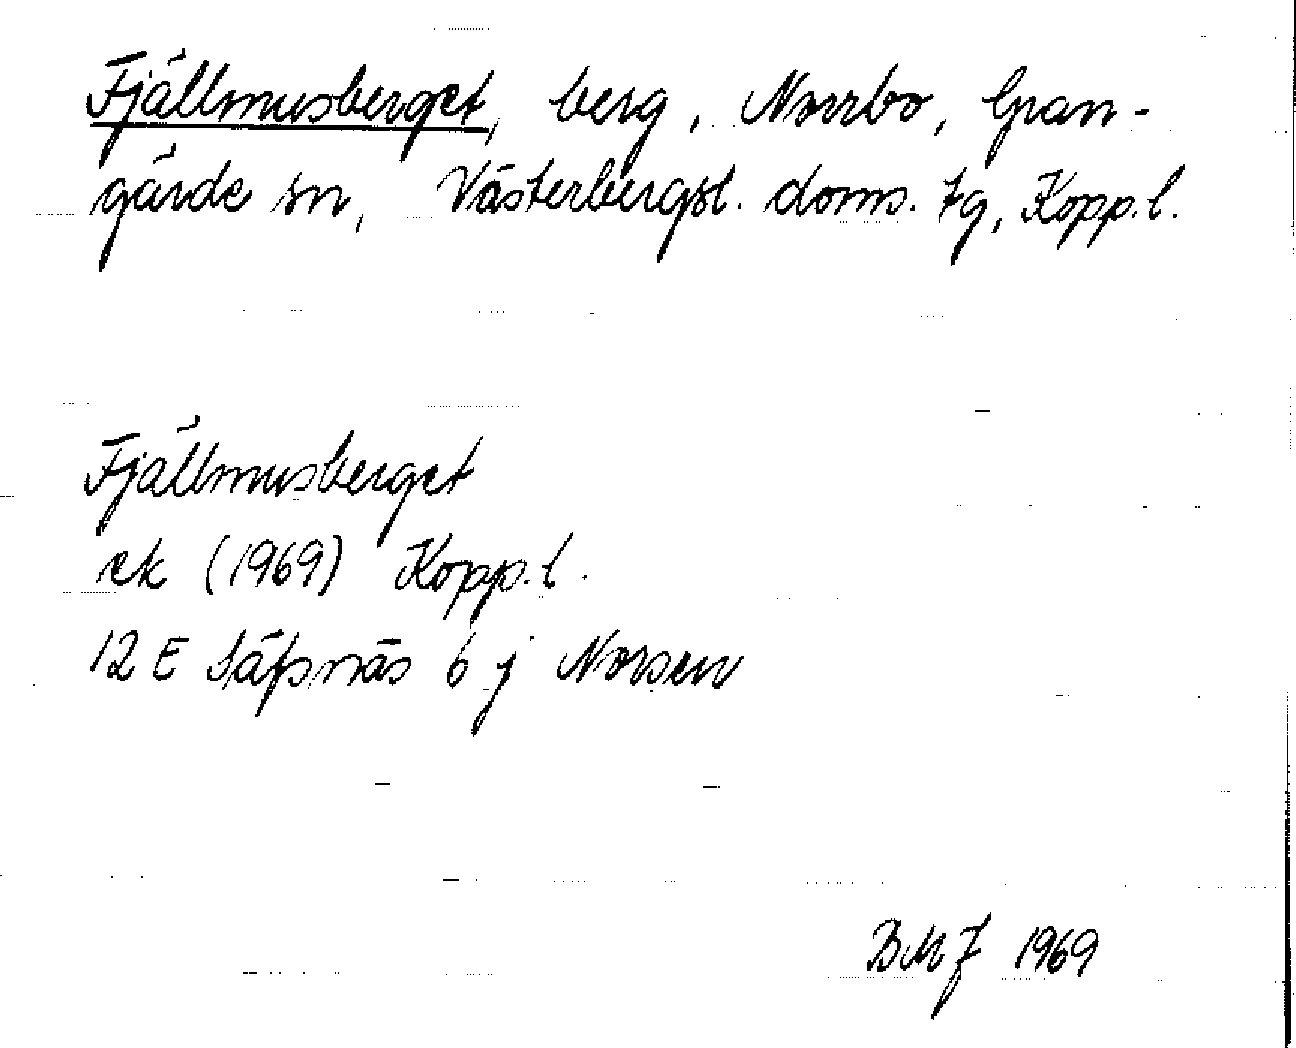 Fjällmusberget, berg, Norrbo, Gran-
gärde sn, Västerbergsl. doms. tg, Kopp. l.
Fjällmusberget
ek (1969) Kopp. l.
12 E Säfsnäs 6 j Norsen
BMJ 1969